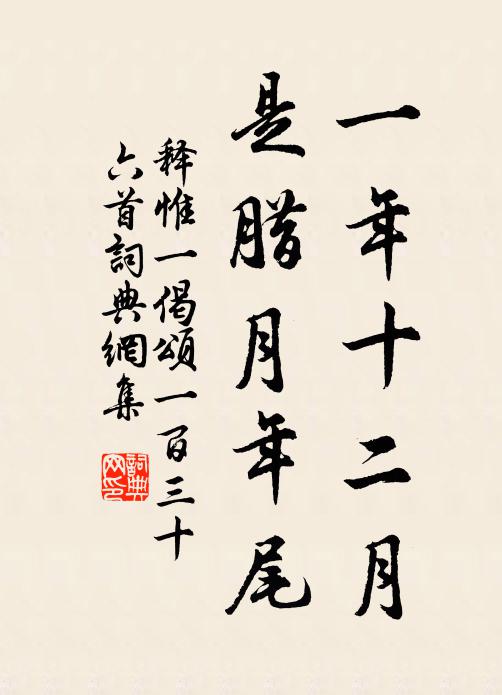 一年十二月
是腊月年尾
释惟一偈頌一百三十
六首詞典網集
詞典
网印